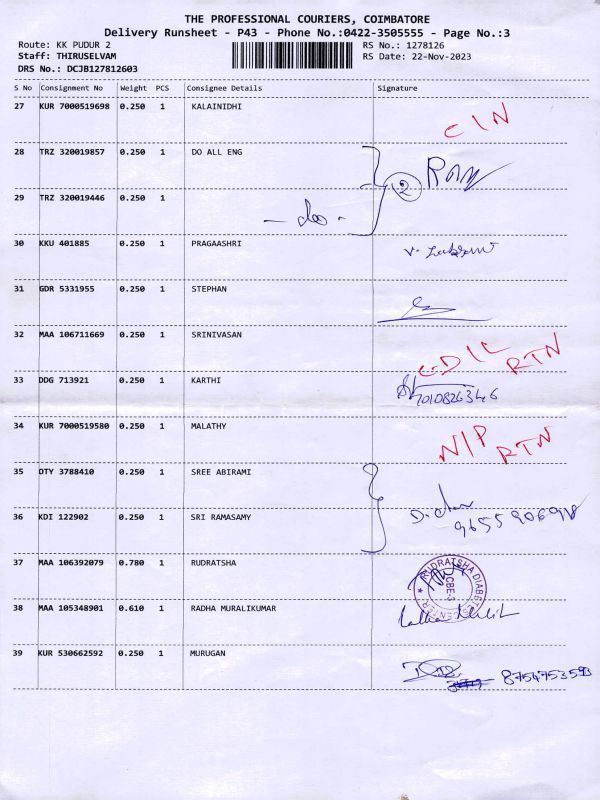 THE PROFESSIONAL COURIERS, COIMBATORE
Delivery Runsheet - P43 - Phone No.:0422-3505555 - Page No.:3
Route: KK PUDUR 2 RS No.: 1278126
Staff: THIRUSELVAM RS Date: 22-Nov-2023
DRS No.: DCJB127812603
S No Consignment No Weight PCS Consignee Details Signature
27 KUR 7000519698 0.250 1 KALAINIDHI
28 TRZ 320019857 0.250 1 DO ALL ENG
2
29 TRZ 320019446 0.250 1
- do -
30 KKU 401885 0.250 1 PRAGAASHRI
31 GDR 5331955 0.250 1 STEPHAN
32 MAA 106711669 0.250 1 SRINIVASAN
RTN
33 DDG 713921 0.250 1 KARTHI
34 KUR 7000519580 0.250 1 MALATHY
N/P RTN
35 DTY 3788410 0.250 1 SREE ABIRAMI
36 KDI 122902 0.250 1 SRI RAMASAMY
37 MAA 106392079 0.780 1 RUDRATSHA
RUDRATSHA DIABETES CENTER
CBE-
38 MAA 105348901 0.610 1 RADHA MURALIKUMAR
39 KUR 530662592 0.250 1 MURUGAN
8754753593